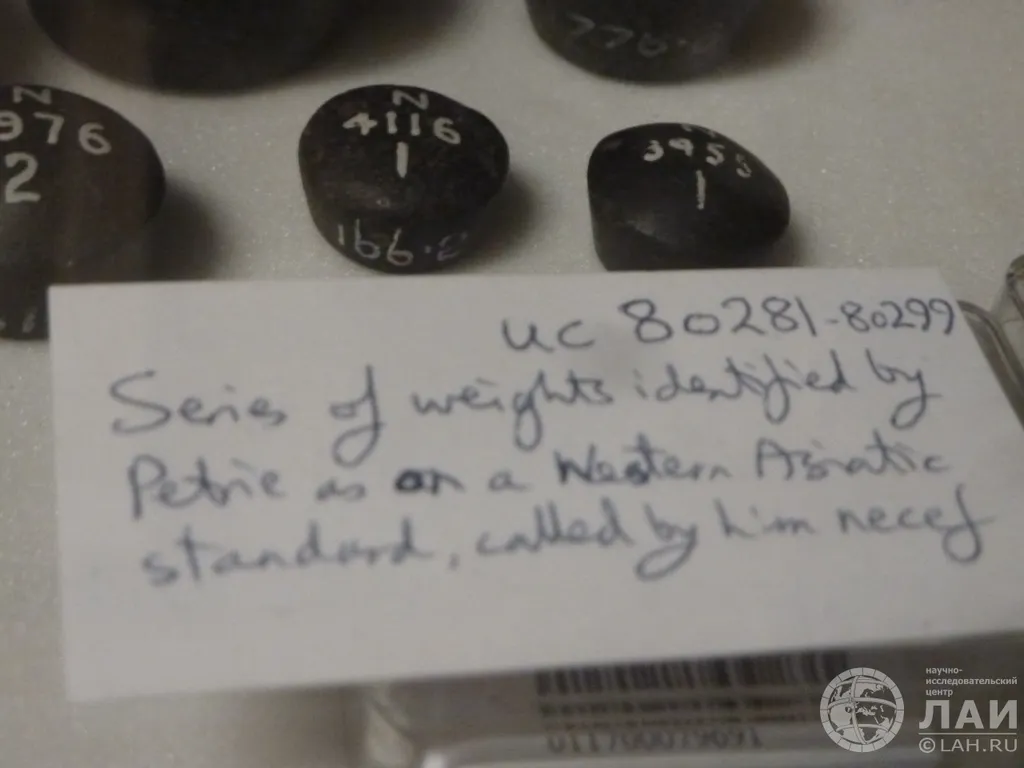 N
976
2
N
4116
1
166.0
3955
1
UC 80281-80299
Series of weights identified by
Petrie as on a Western Asiatic
standard, called by him necef
научно-
исследовательский
центр
ЛАИ
© LAH.RU